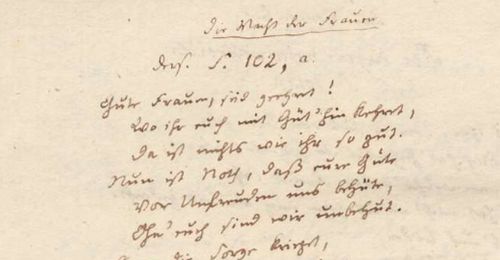 Die Macht der Frauen
ders. S. 102, a.
Gute Frauen, sid geehret!
Wo ihr euch mit Güt' hin kehret,
Da ist nichts wie ihr so gut.
Nun ist Noth, daß eure Güte
Vor Unfreuden uns behüte,
Ohn' euch sind wir unbehut.
die Sorge krieget,